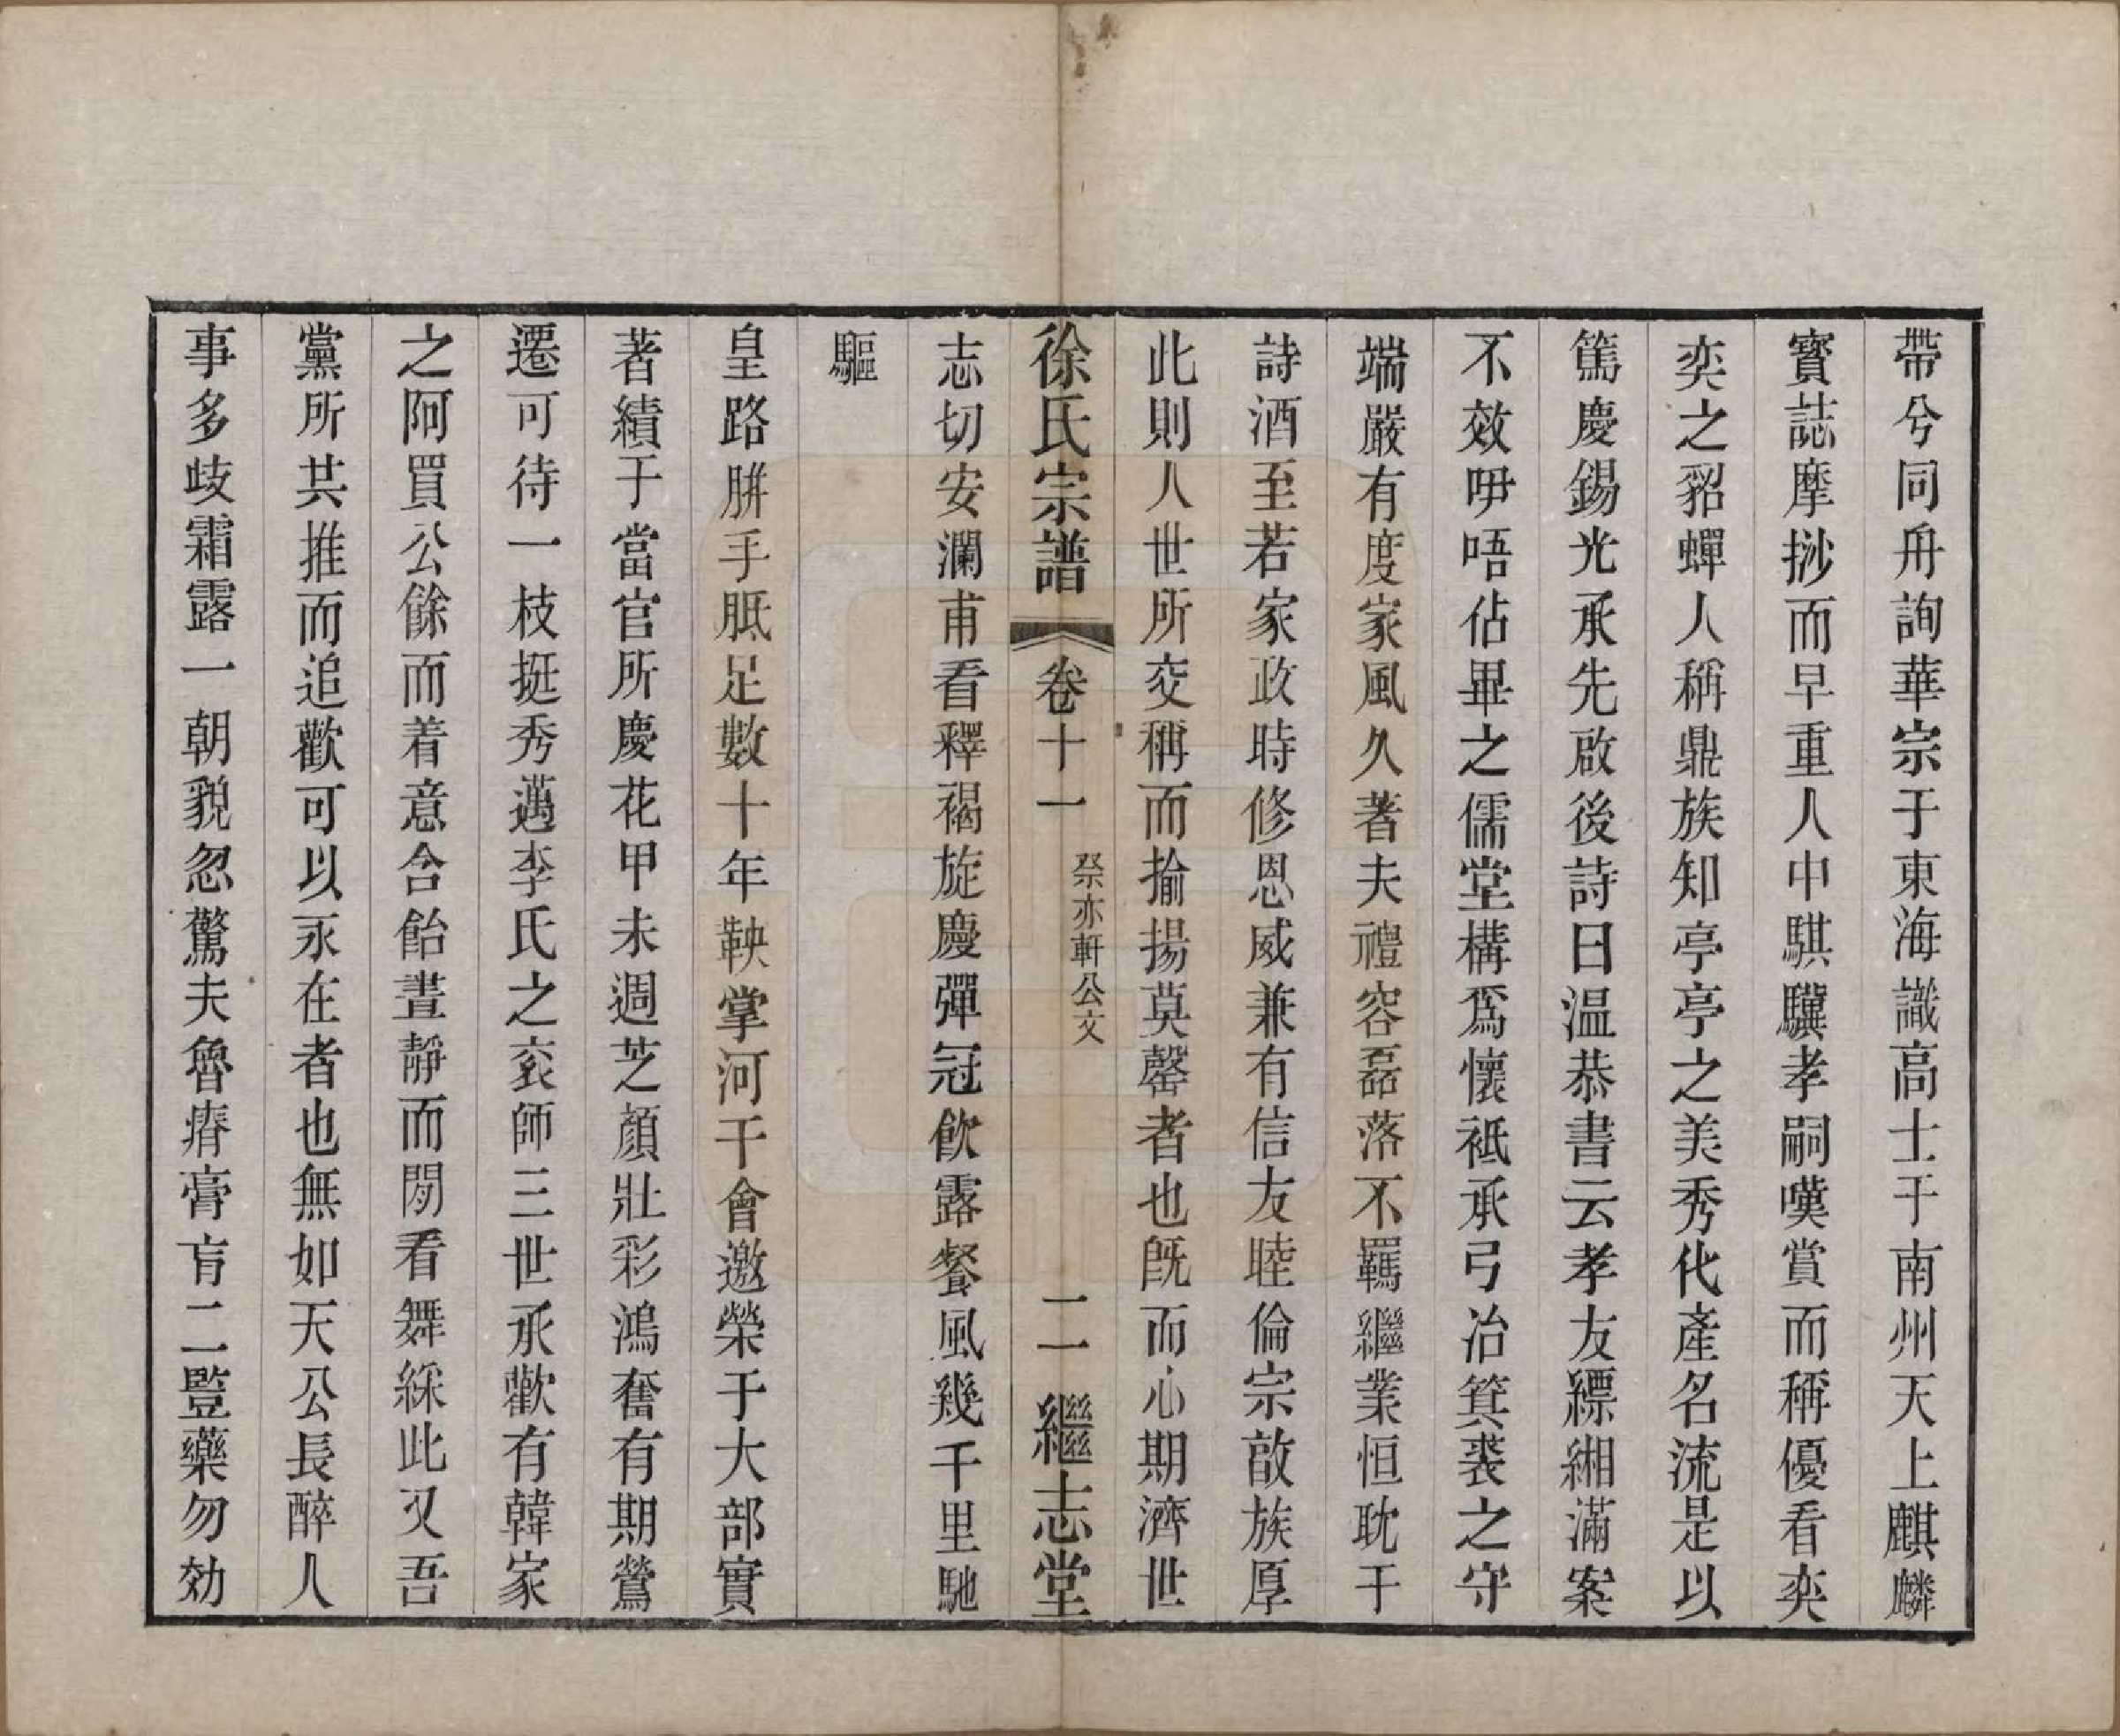 帶兮同舟詢華宗于東海識高士于南州天上麒麟
寳誌摩挱而早重人中騏驥孝嗣嘆賞而稱優看奕
奕之貂蟬人稱鼎族知亭亭之美秀化產名流是以
篤慶錫光承先啟後詩曰温恭書云孝友縹緗滿案
不效咿唔佔畢之儒堂構爲懷祗承弓冶箕裘之守
端嚴有度家風久著夫禮容磊落不羈繼業恒耽于
詩酒至若家政時修恩威兼有信友睦倫宗敨族厚
此則人世所交稱而揄揚莫罄者也旣而心期濟世
徐氏宗譜 卷十一 祭亦軒公文 二 繼志堂
志切安瀾甫看釋褐旋慶彈冠飲露餐風幾千里馳
驅
皇路胼手胝足數十年鞅掌河干會邀榮于大部實
著績于當官所慶花甲未週芝顏壯彩鴻奮有期鶯
遷可待一枝挺秀邁李氏之衮師三世承歡有韓家
之阿買公餘而着意含飴晝靜而閒看舞綵此又吾
黨所共推而追歡可以永在者也無如天公長醉人
事多歧霜露一朝貌忽驚夫魯瘠膏肓二豎藥勿効